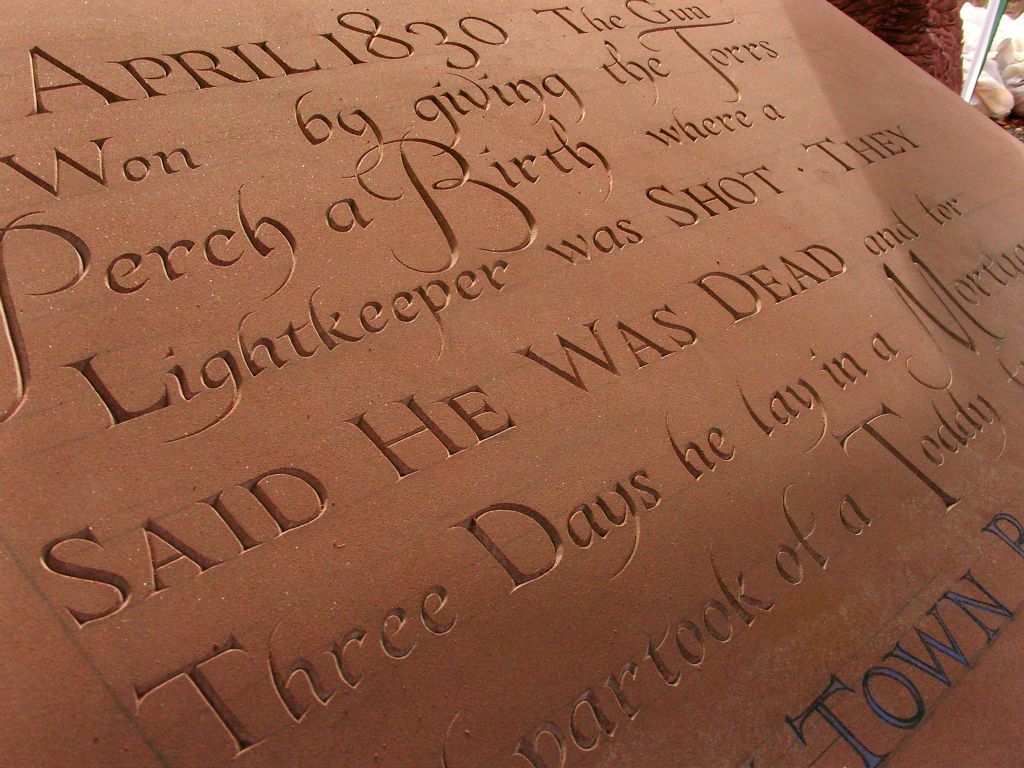 APRIL 1830 The Gun
Won by giving the Torrs
Perch a Birth where a
Lightkeeper was SHOT · THEY
SAID HE WAS DEAD and for
Three Days he lay in a
partook of a Toddy
TOWN